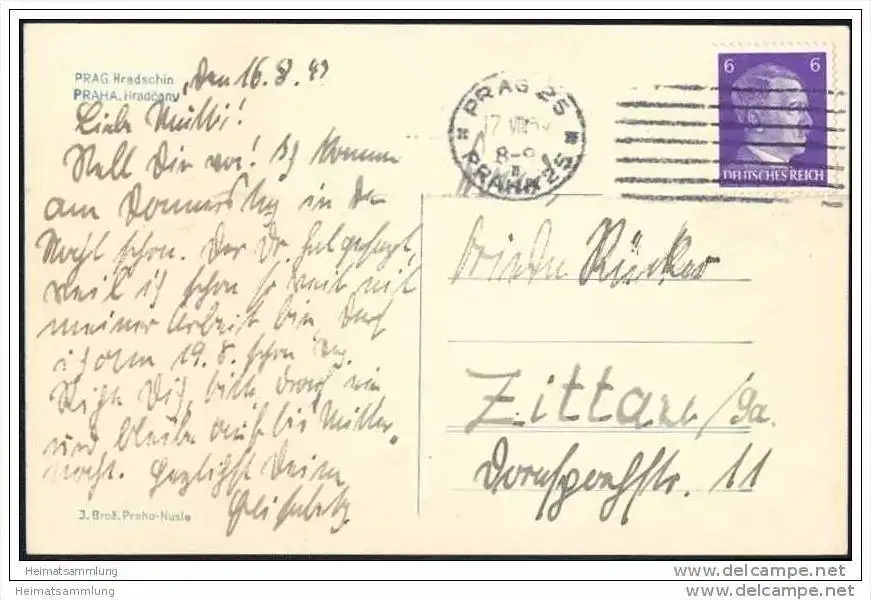 PRAG Hradschin
PRAHA. Hradčany
Den 16.8.43
Liebe Mutti!
Stell Dir vor! Ich komme
am Donnerstag in der
Nacht schon. Der Dr. hat gesagt,
weil ich schon so weit mit
meiner Arbeit bin, darf
ich am 19.8. schon
Dich, bitte, danach ein
und bleibe auf bis Mitter-
nacht. Herzlichst Deine
PRAG 25
17 VIII 43
8-9
PRAHA 25
6 6
DEUTSCHES REICH
Rücker
Zittau/Sa.
11
J. Brož, Praha-Nusle
Heimatsammlung
Heimatsammlung
www.delcampe.net
www.delcampe.net